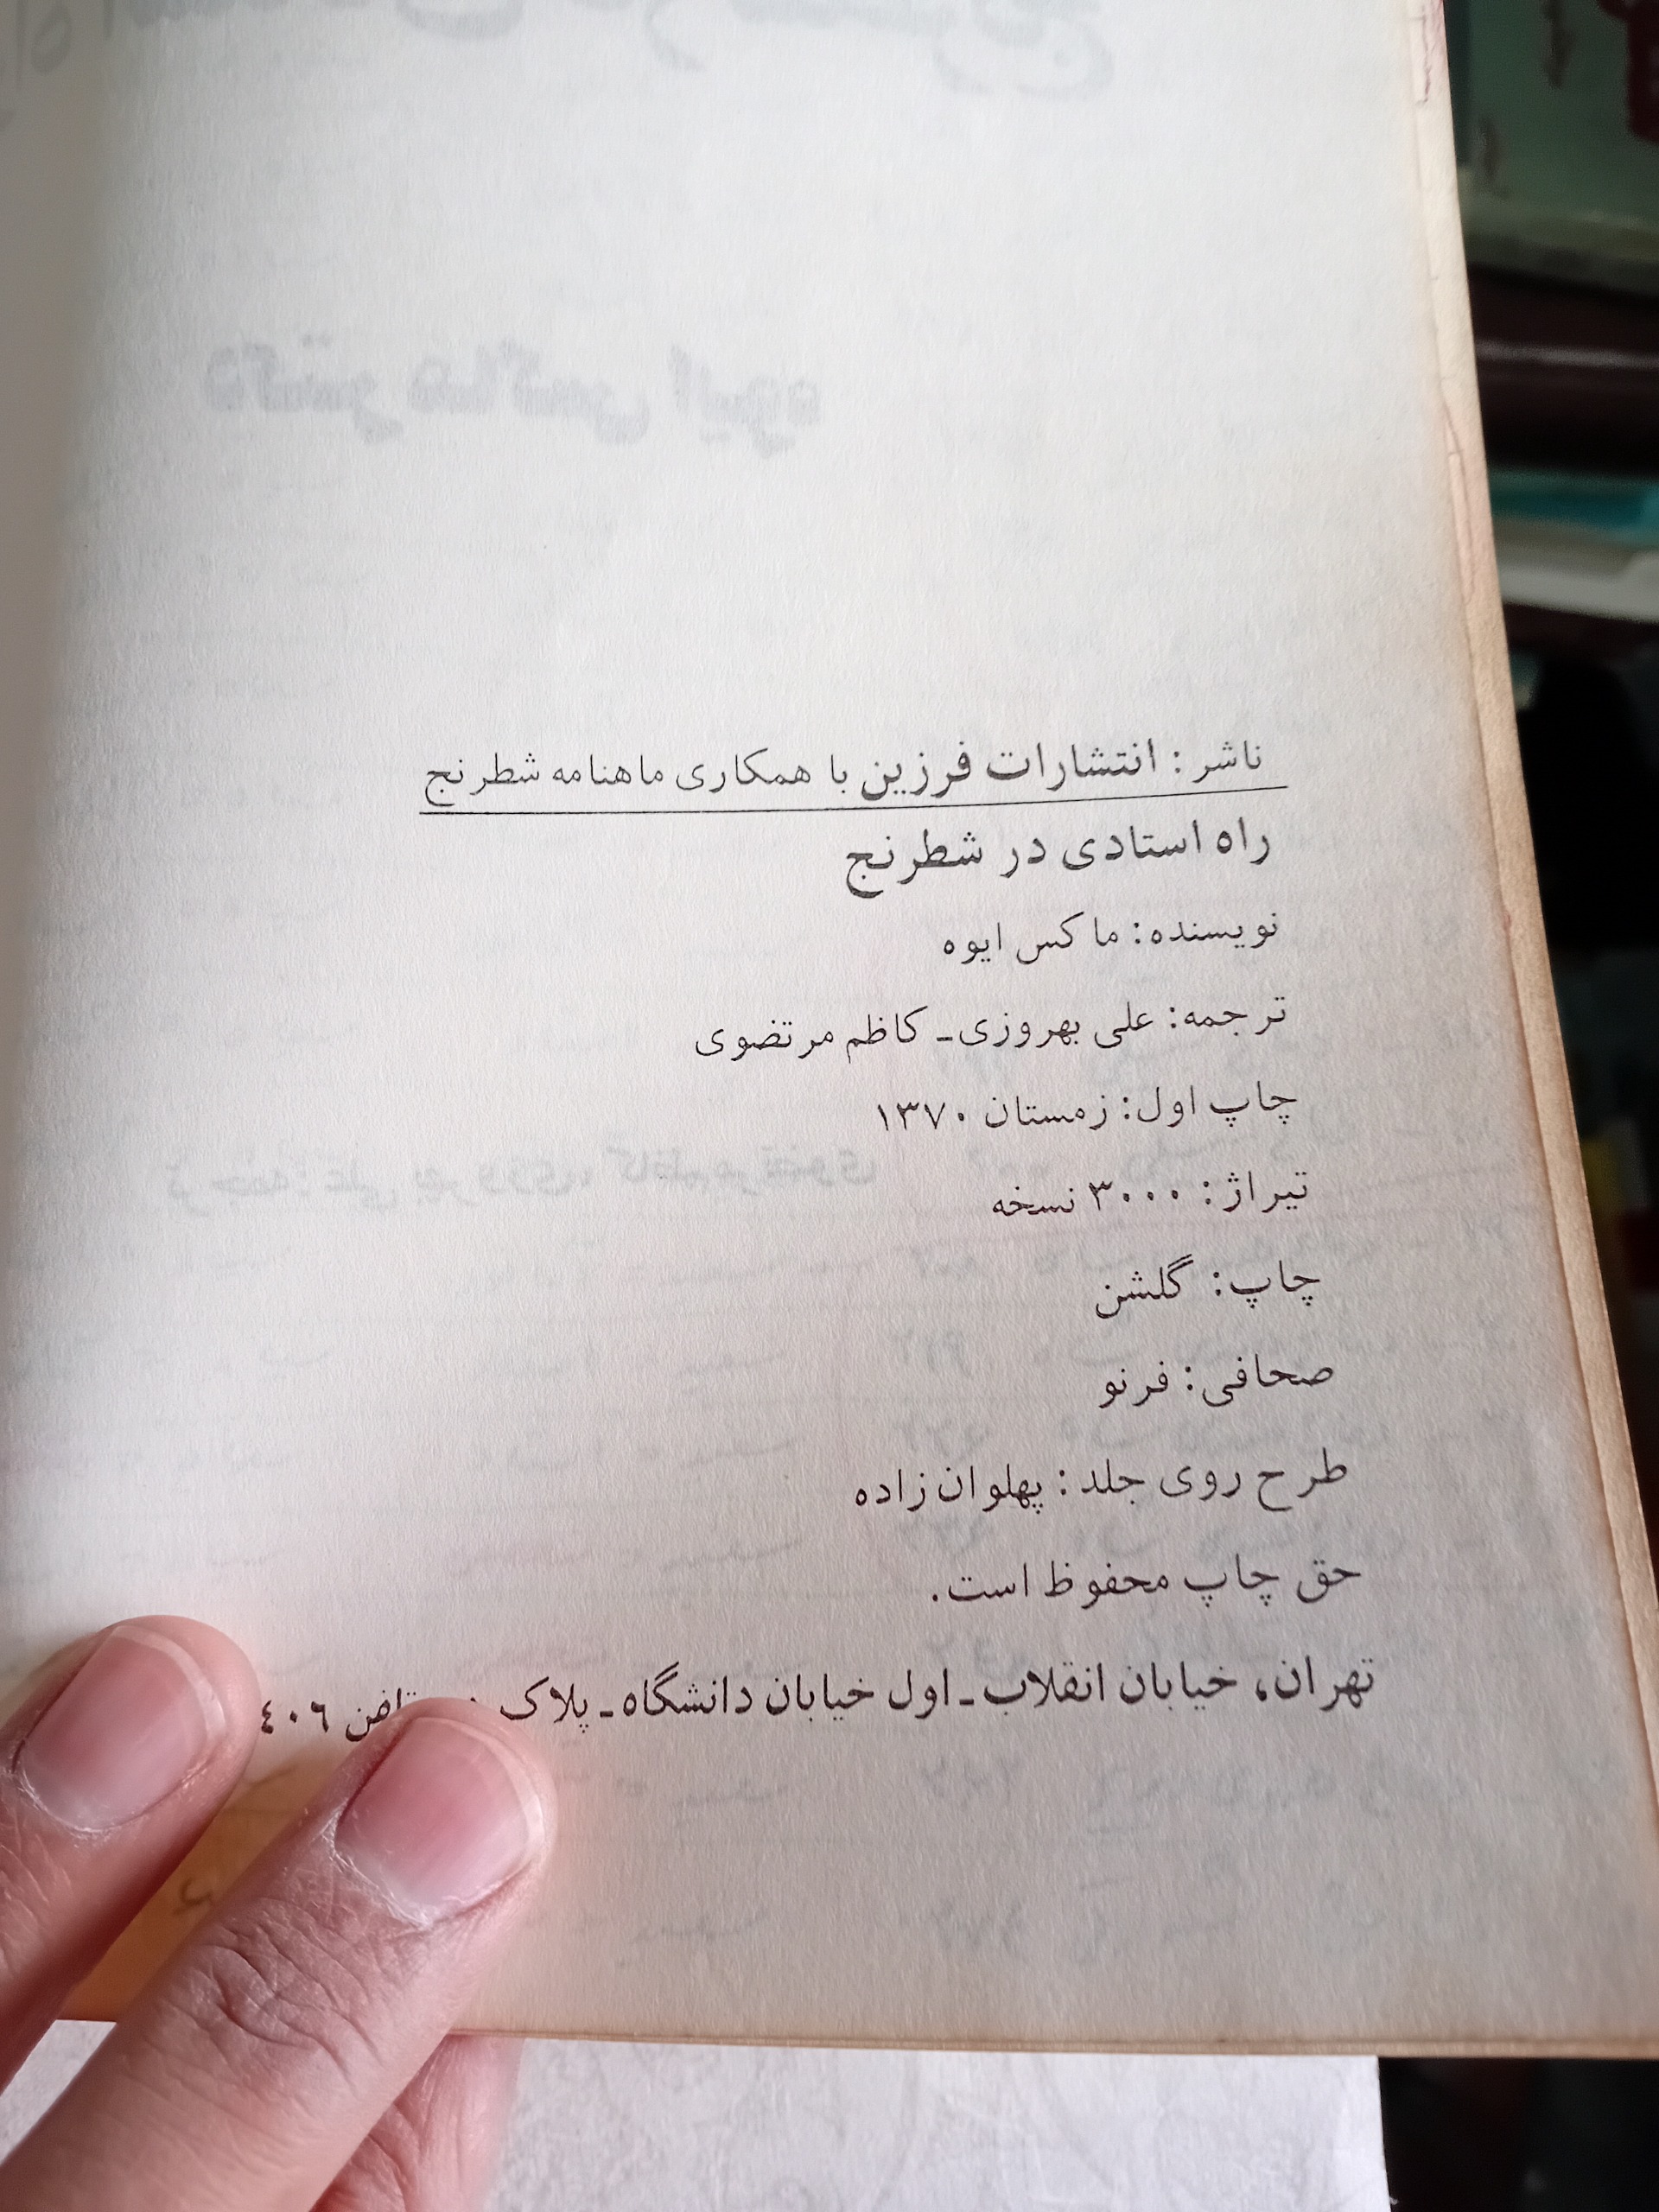 ناشر : انتشارات فرزین با همکاری ماهنامه شطرنج
راه استادی در شطرنج
نویسنده: ماکس ایوه
ترجمه: علی بهروزی ـ کاظم مرتضوی
چاپ اول: زمستان ۱۳۷۰
تیراژ: ۳۰۰۰ نسخه
چاپ: گلشن
صحافی: فرنو
طرح روی جلد: پهلوان‌زاده
حق چاپ محفوظ است.
تهران، خیابان انقلاب ـ اول خیابان دانشگاه ـ پلاک